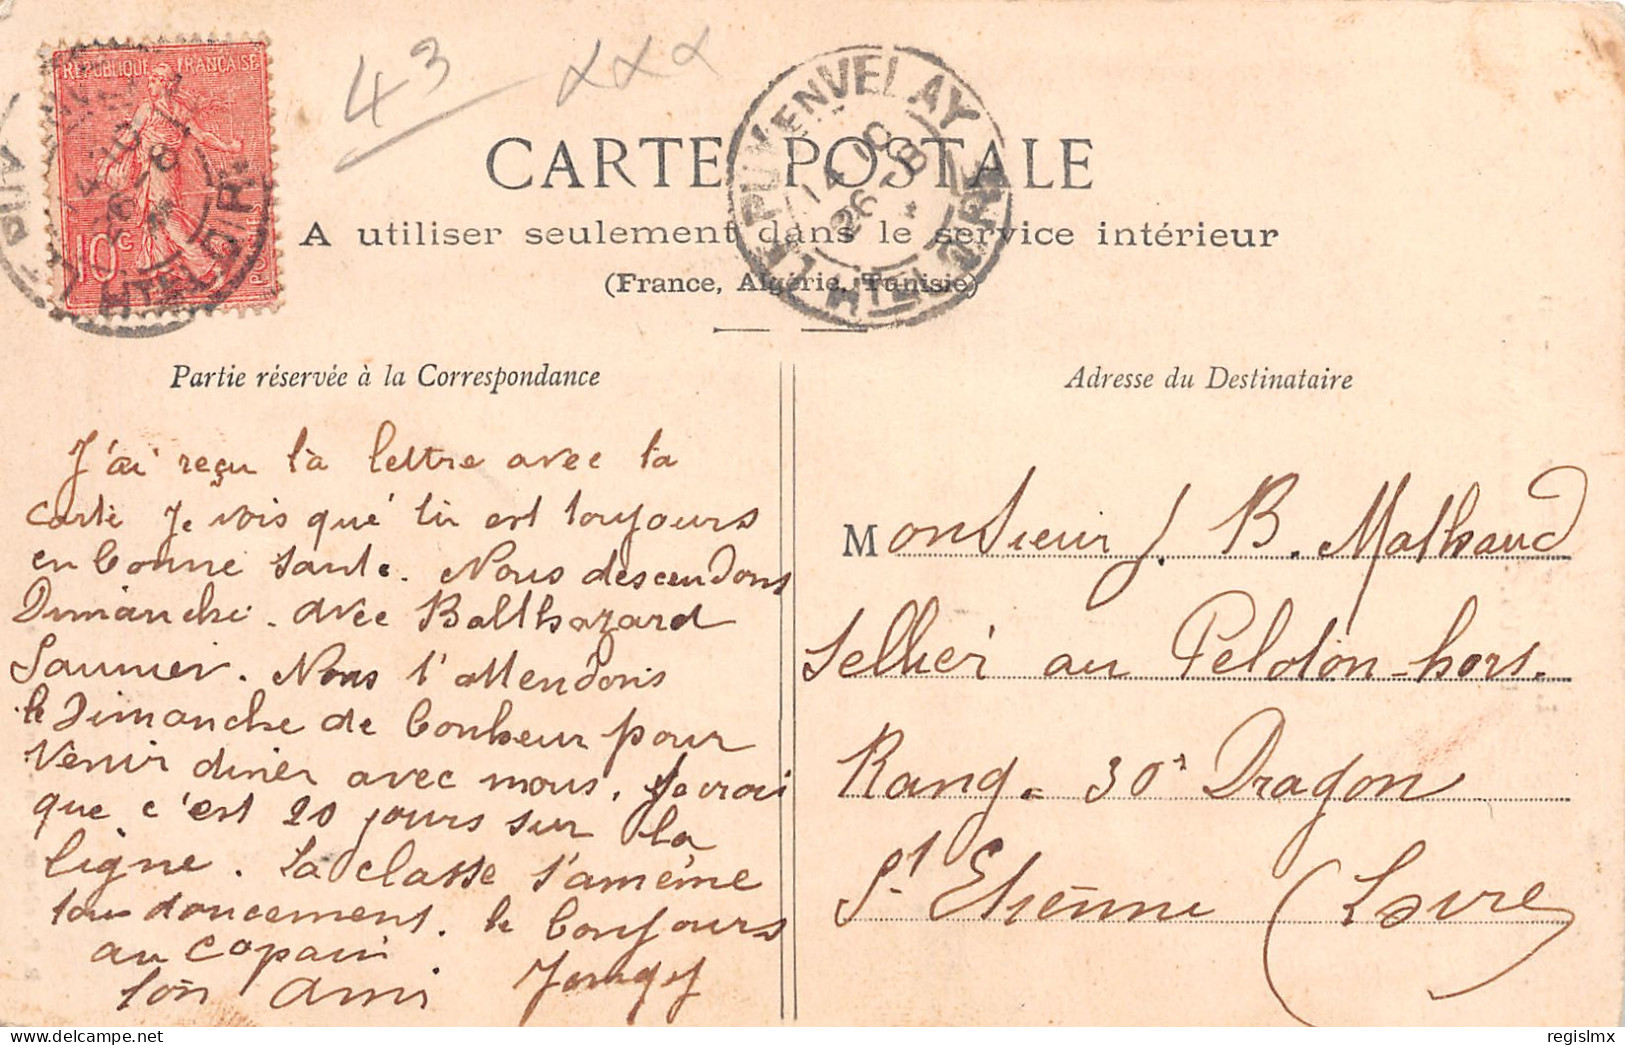 43 xxx
REPUBLIQUE FRANÇAISE
10c
POSTES
LE PUY EN VELAY
14 10
26 - 8
HTE LOIRE
CARTE POSTALE
A utiliser seulement dans le service intérieur
(France, Algérie, Tunisie)
Partie réservée à la Correspondance
J'ai reçu ta lettre avec ta
carte Je vois que tu est toujours
en bonne santé. Nous descendons
Dimanche. avec Balthazard
Saunier. Nous t'attendons
le Dimanche de bonheur pour
venir diner avec nous. Je crois
que c'est 20 jours sur la
ligne. La classe s'amène
tou doucement. le bonjours
au copain
ton ami
Adresse du Destinataire
Monsieur J. B. Malhaud
Sellier au Peloton-hors.
Rang. 30e Dragon
St Etienne (Loire)
regislmx